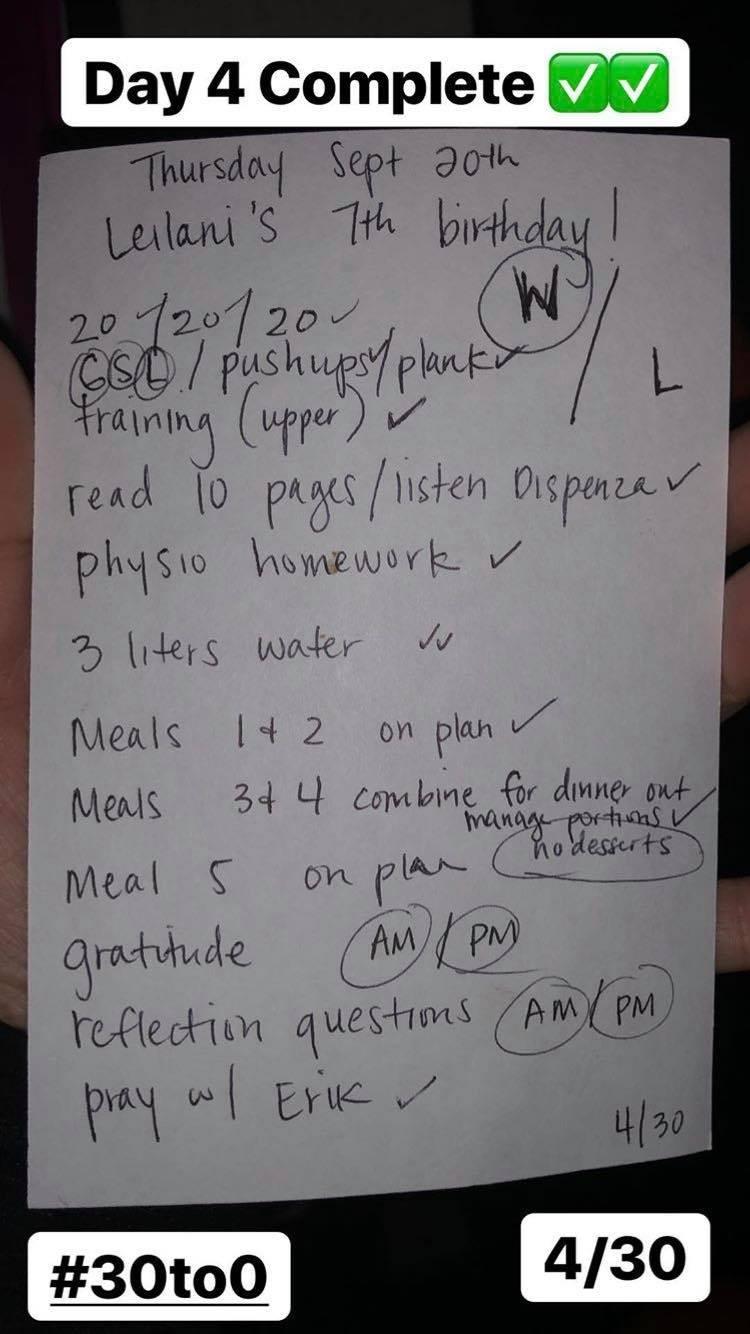 Day 4 Complete ✅✅
Thursday Sept 20th
Leilani's 7th birthday!
20/20/20 ✓
W / L
CSL / pushups / plank ✓
training (upper) ✓
read 10 pages/listen Dispenza ✓
physio homework ✓
3 liters water ✓✓
Meals 1 & 2 on plan ✓
Meals 3 & 4 combine for dinner out
manage portions ✓
no desserts
Meal 5 on plan
gratitude AM / PM
reflection questions AM / PM
pray w/ Erik ✓
4/30
#30to0
4/30